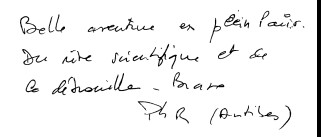 Belle aventure en plein Paris.
Du rire scientifique et de
la débrouille - Bravo
Ph R (Antibes)